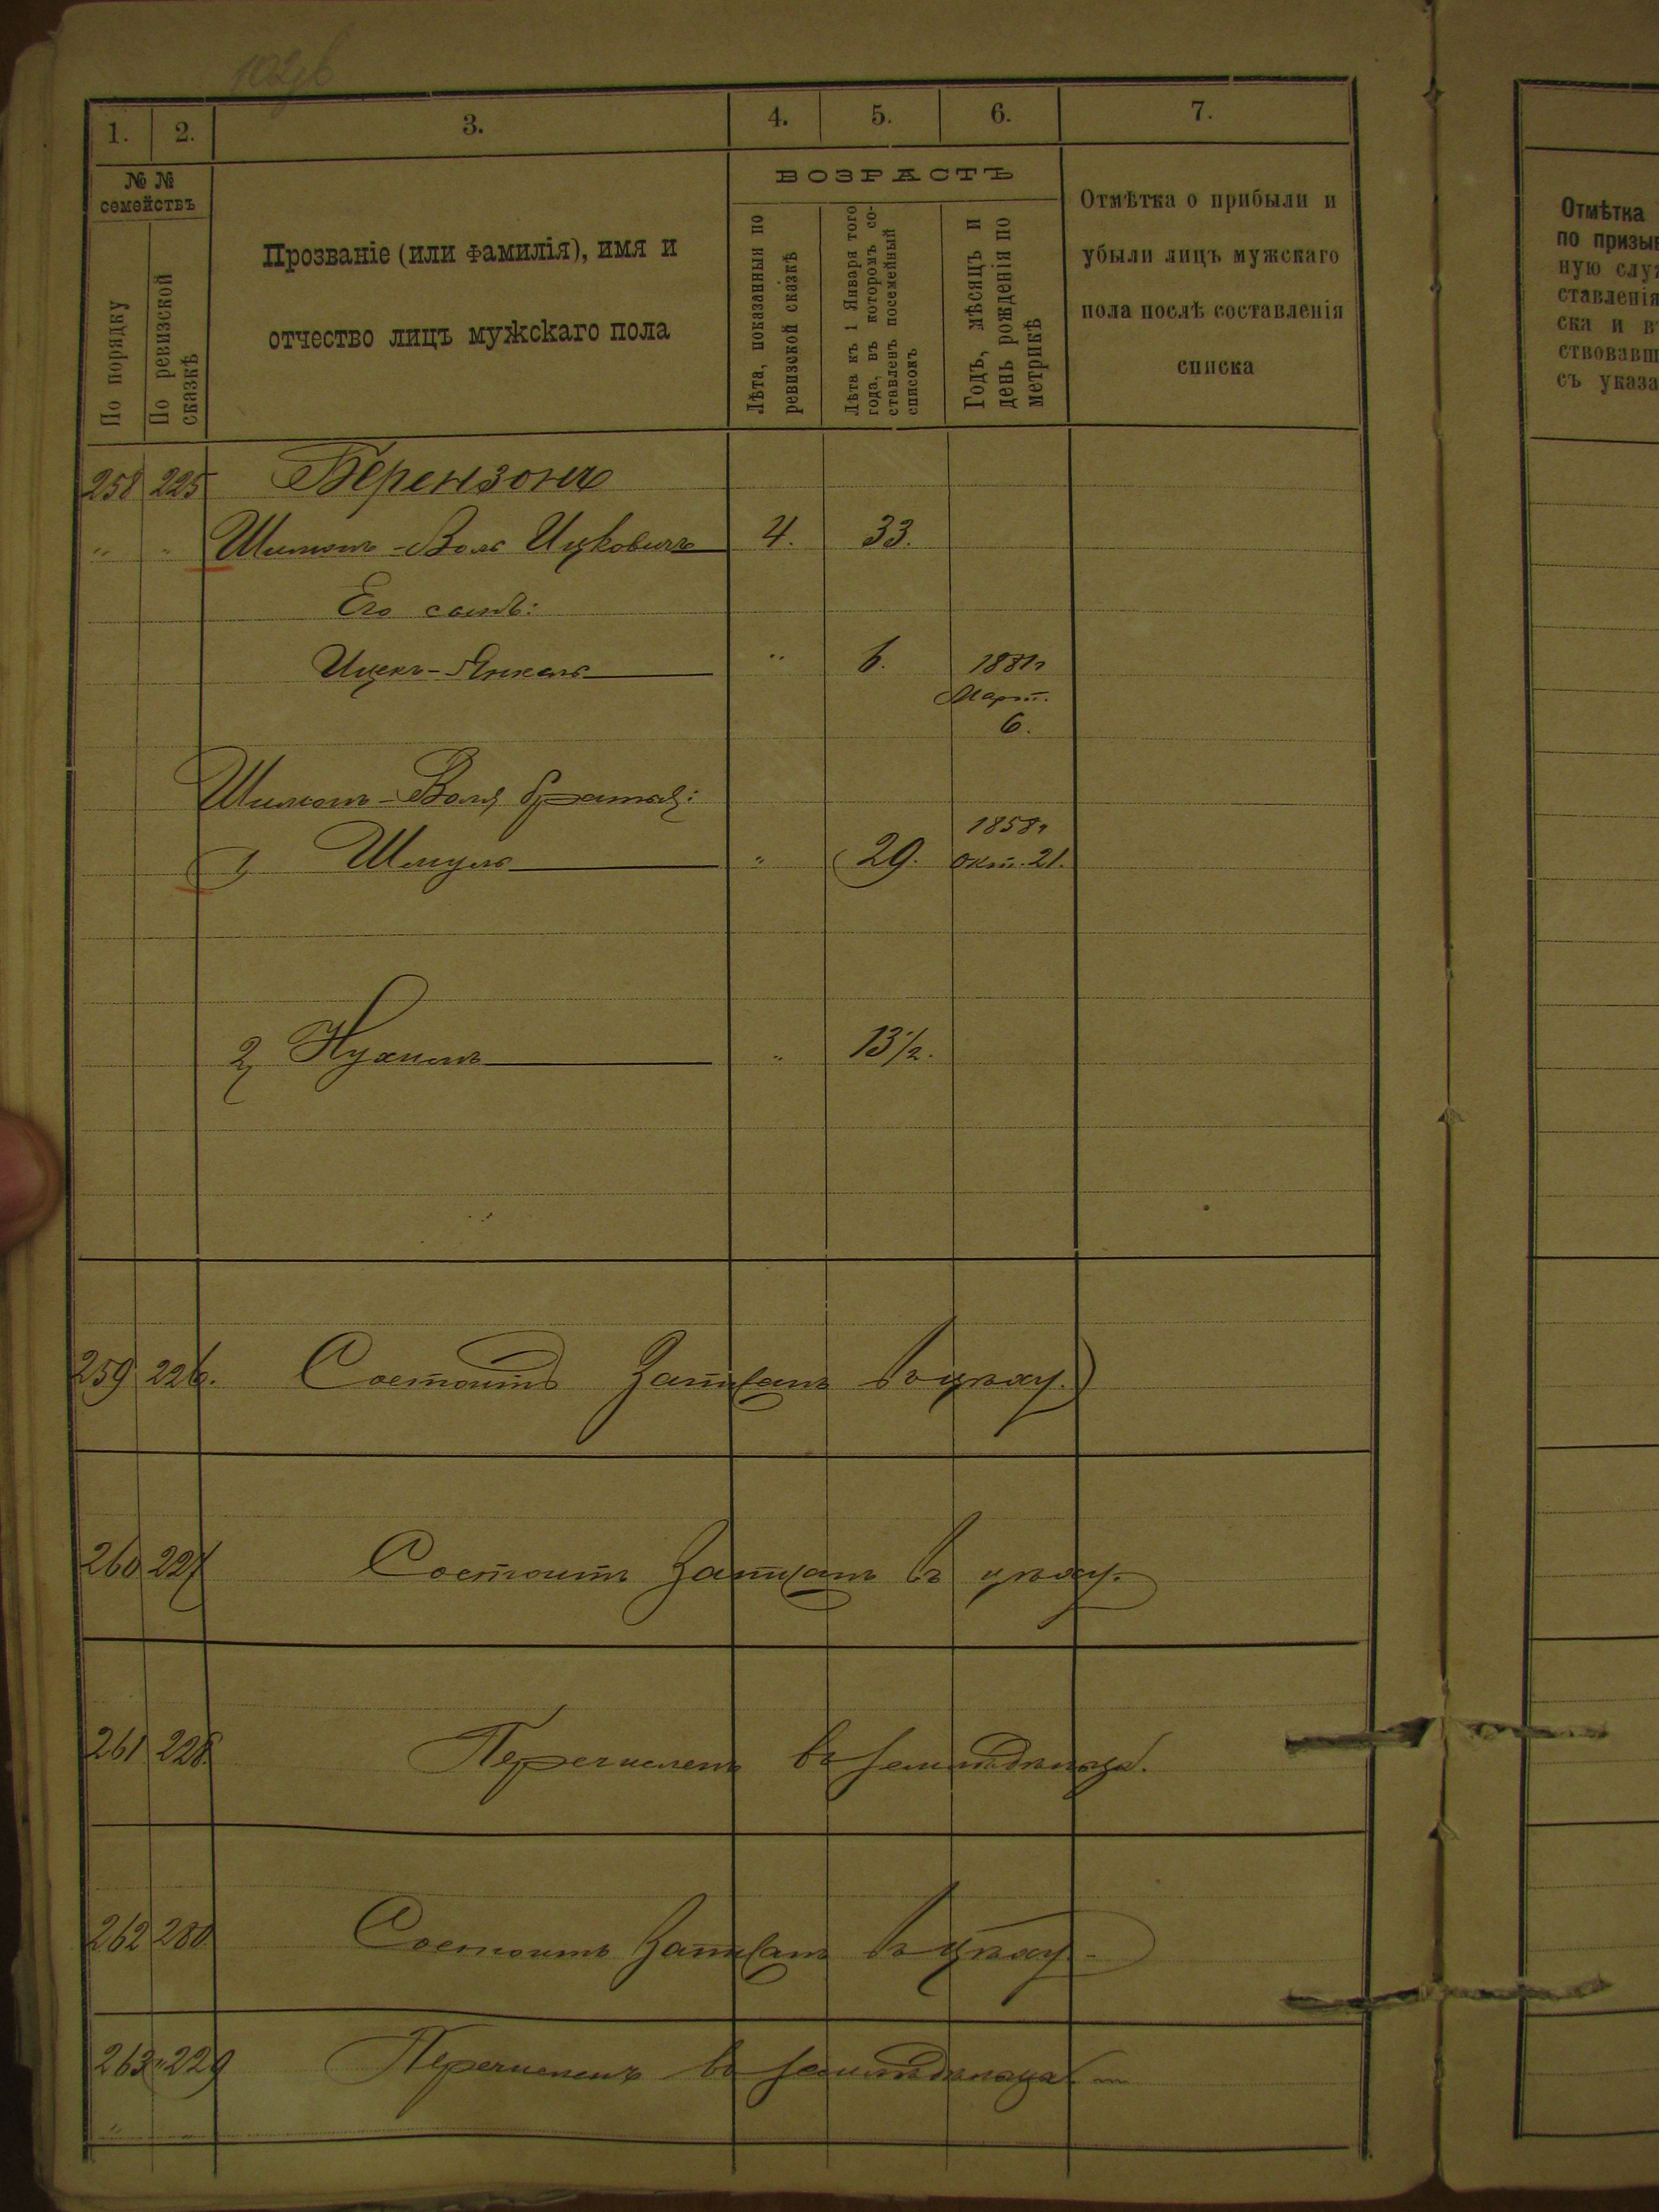 102об
1. 2. 3. 4. 5. 6. 7.
№ №
семействъ
По порядку
По ревизской
сказкѣ
Прозваніе (или фамилія), имя и
отчество лицъ мужскаго пола
ВОЗРАСТЪ
Лѣта, показанныя по
ревизской сказкѣ
Лѣта къ 1 Января того
года, въ которомъ со-
ставленъ посемейный
списокъ
Годъ, мѣсяцъ и
день рожденія по
метрикѣ
Отмѣтка о прибыли и
убыли лицъ мужскаго
пола послѣ составленія
списка
Отмѣтка
по призыв
ную служ
ставленія
ска и въ
ствовавш
съ указа
258 225 Берензонъ
" " Шимонъ-Вольѳ Ицковичъ 4. 33.
Его сынъ:
Ицекъ-Янкель " 6. 1881г
Март.
6.
Шимонъ-Воля братья:
1858г
1, Шмуль " 29. Окт. 21.
2, Нухимъ " 13½.
259 226. Состоитъ Записанъ въ цѣху.
260 227 Состоитъ Записанъ въ цѣху.
261 228. Перечисленъ въ земледѣльцы.
262 280 Состоитъ Записанъ въ цѣху.
263 229 Перечисленъ въ земледѣльцы.
"